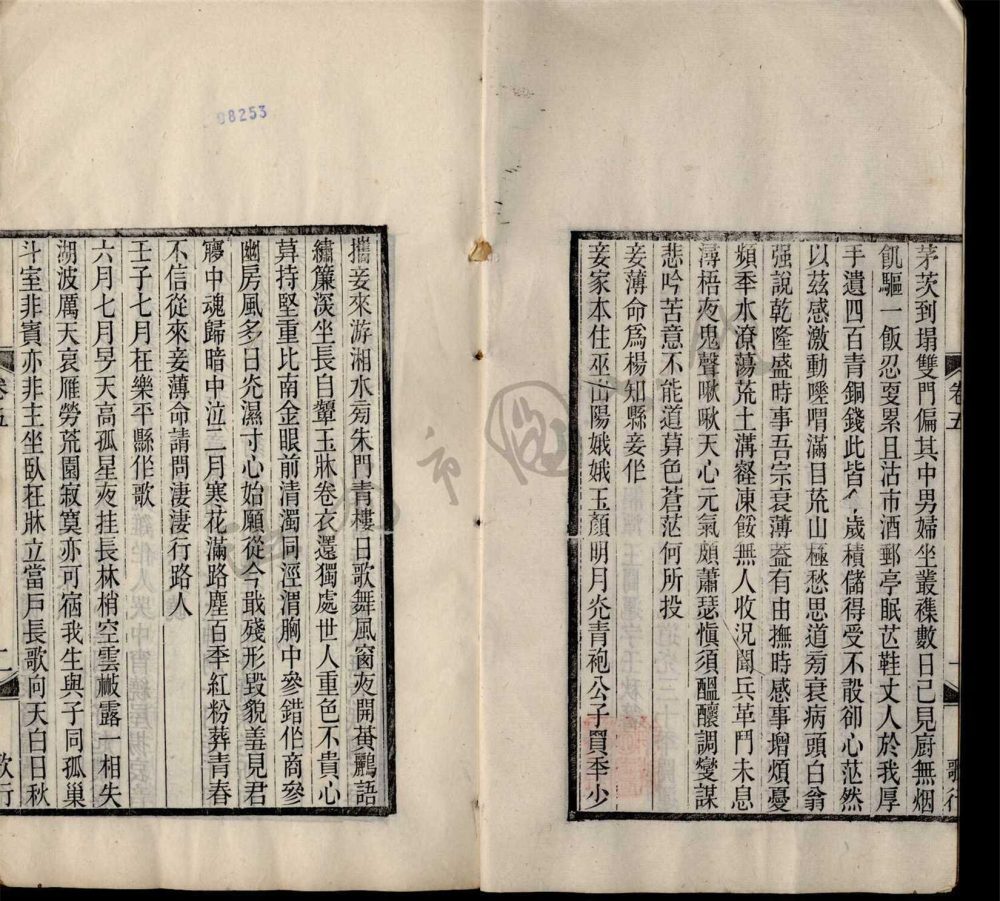 茅茨到塌雙門偏其中男婦坐叢襍數日已見廚無烟
飢驅一飯忍耍累且沽市酒郵亭眠芒鞋丈人於我厚
手遺四百青銅錢此皆歲積儲得受不㪅卻心茫然
以茲感激動嘐喟滿目荒山極愁思道菊衰病頭白翁
强說乾隆盛時事吾宗衰薄葢有由撫時感事增煩憂
頻秊水潦蕩荒土溝壑凍餒無人收況聞兵革鬥未息
潯梧夜鬼聲啾啾天心元氣頗蕭瑟愼須醞釀調燮謀
悲吟苦意不能道莫色蒼茫何所投
妾薄命爲楊知縣妾作
妾家本住巫山陽娥娥玉顏明月灮青袍公子買秊少
卷五
一
歌行
攜妾來游湘水菊朱門青樓日歌舞風窗夜開黃鸝語
繡簾深坐長自顰玉牀卷衣還獨處世人重色不貴心
莫持堅重比南金眼前清濁同涇渭胸中參錯作商參
幽房風多日灮濕寸心始願從今戢殘形毀貌羞見君
㝱中魂歸暗中泣二月寒花滿路塵百秊紅粉葬青春
不信從來妾薄命請問淒淒行路人
壬子七月在樂平縣作歌
六月七月旻天高孤星夜挂長林梢空雲蔽露一相失
湖波厲天哀雁勞荒園寂寞亦可宿我生與子同孤巢
斗室非賓亦非主坐臥在牀立當戶長歌向天白日秋
卷五
二
歌行
08253